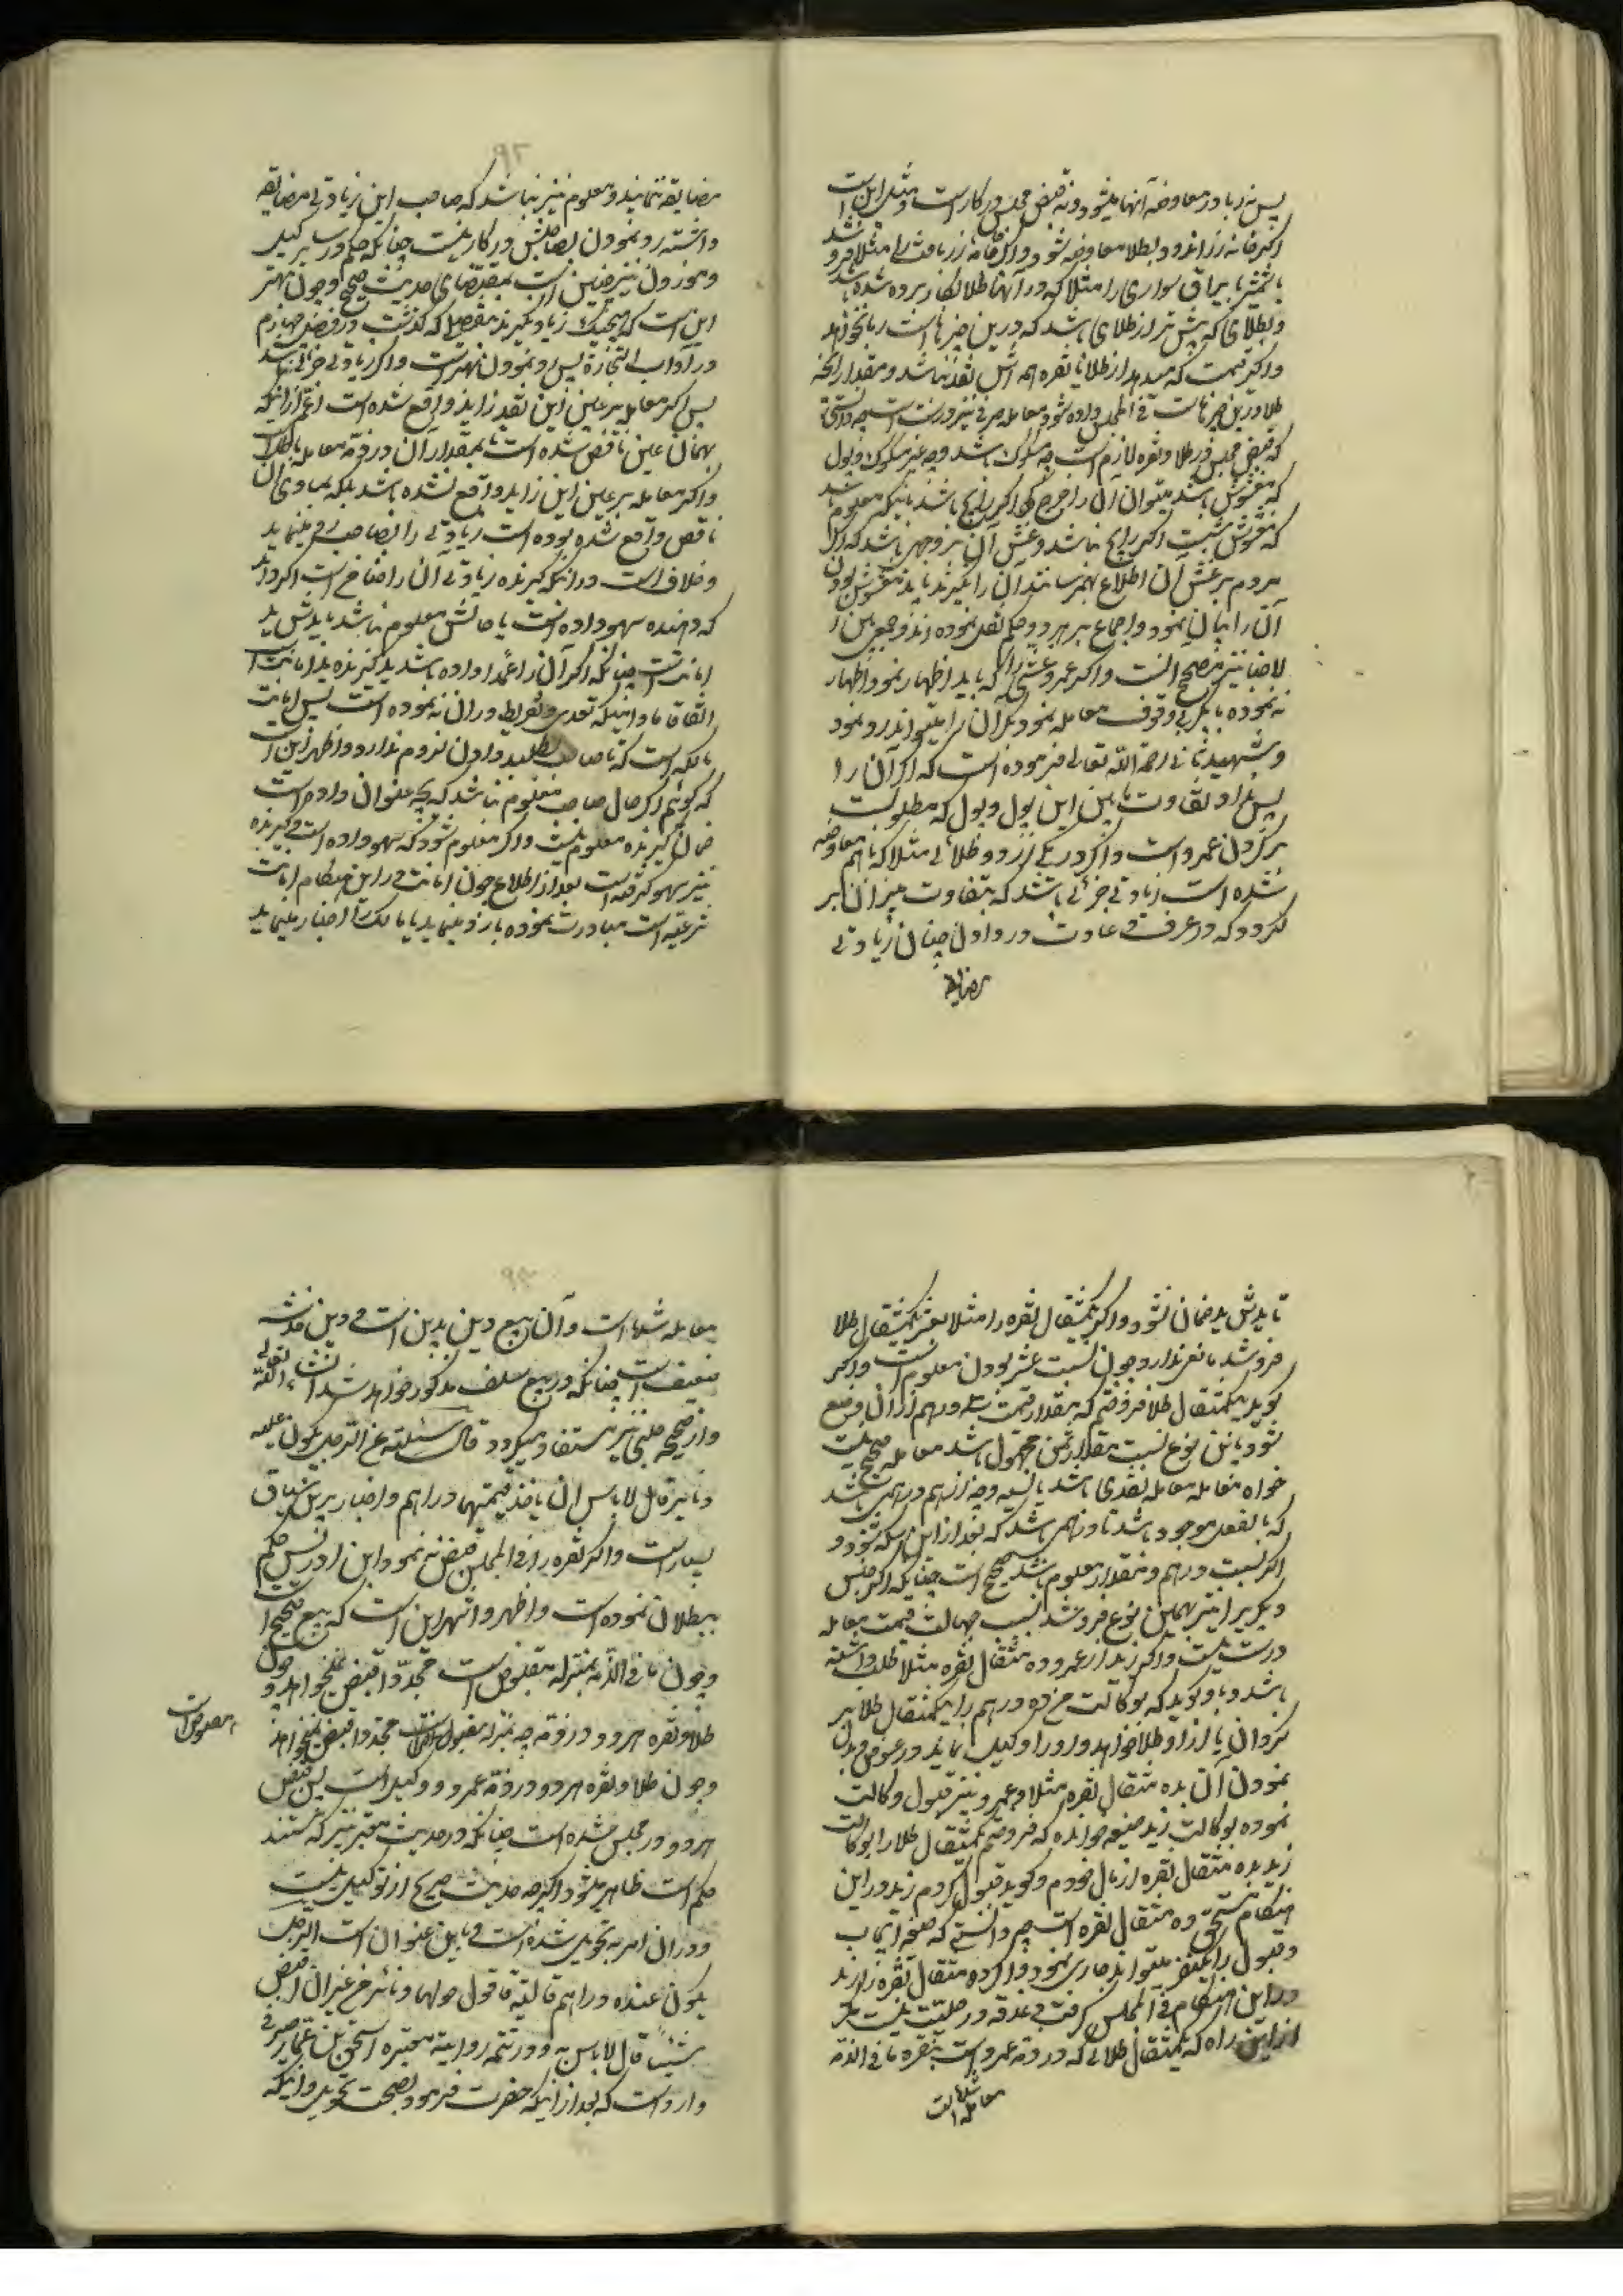 پس نه ربا در معاوضه آنها میشود و نه قبض مجلس در کار است و مثل این است
اگر خانه زر اندود بطلا معاوضه شود و اگر جامه زر بافته را مثلا فروشد
یا شمشیر یا یراق سواری را مثلا که در آنها طلا بکار برده شده باشد
و بطلای که بیش تر از طلای باشد که در این چیزها است ربا نخواهد
و اگر قیمت که میدهد از طلا یا نقره همه اش نقد نباشد و مقدار آنچه
طلا در این چیزها است فی المجلس داده شود معامله صرفی نیز درست است چه دانستی
که قبض مجلس در طلا و نقره لازم است چه مسکوک باشد و چه غیر مسکوک و پول
که مغشوش باشد میتوان آن را خرج کرد اگر رایج باشد با اینکه معلوم باشد
که مغشوش است اگر رایج نباشد و غش آن بنوعی باشد که اگر
مردم بر غش آن اطلاع بهم رسانند آن را نگیرند باید مغشوش بودن
آن را بیان نمود و اجماع بر هر دو حکم نقل نموده اند و جمع بین
الاخبار نیز مصحح آنست و اگر عمرو غشی را که باید اظهار نمود اظهار
نه نموده با بکر بی وقوف معامله نمود بکر آن را میتواند رد نمود
و شهید ثانی رحمه الله تعالی فرموده است که اگر آن را
پس بدهد تفاوت مابین این پول و پول که مطلوبست
بر گردن عمرو است و اگر در یکی از زر و طلائی مثلا که با هم معاوضه
شده است زیادتی جزئی باشد که بتفاوت میزان بر
نگردد که در عرف و عادت در دادن چنان زیادتی
مضایقه
مضایقه ننمایند و معلوم نیز نباشد که صاحب این زیادتی مضایقه
داشته رد نمودن بصاحبش در کار نیست چنانکه حکم در سایر کیل
و موزون نیز چنین است بمقتضای حدیث صحیح و چون بهتر
این است که هیچیک زیاد نگیرند بتفصیلی که گذشت در فصل چهارم
در آداب التجاره پس رد نمودن بهتر است و اگر زیادتی جزئی نباشد
پس اگر معامله بر عین این نقد زاید واقع شده است اعم از اینکه
بهمان عین ناقص شده است یا بمقدار آن در ذمه معامله باطل است
و اگر معامله بر عین این زاید واقع نشده باشد بلکه بمساوی آن
ناقص واقع شده بوده است زیادتی را بصاحب رد مینماید
و خلاف است در اینکه گیرنده زیادتی آن را ضامن است اگر داند
که دهنده سهو داده است یا حالش معلوم نباشد یا یدش ید
امانت است چنانکه اگر آن را عمدا داده باشد ید گیرنده ید امانت است
اتفاقا مادامیکه تعدی و تفریط در آن نه نموده است پس امانت
مالکی است که تا صاحب نطلبد دادن لزوم ندارد و اظهر این است
که گوئیم اگر حال صاحب معلوم نباشد که بچه عنوان داده است
ضمان گیرنده معلوم نیست و اگر معلوم شود که سهو داده است و گیرنده
نیز سهو گرفته است بعد از اطلاع چون امانت در این هنگام امانت
شرعیه است مبادرت نموده یا رد مینماید یا مالک را اخبار مینماید
تا یدش ید ضمان نشود و اگر یکمثقال نقره را مثلا بعشر یکمثقال طلا
فروشد مانعی ندارد چون نسبت عشر بودن معلوم است و اگر
گوید یکمثقال طلا فروختم که بمقدار قیمت سه درهم از آن وضع
شود باین نوع نسبت مقدار ثمن مجهول باشد معامله صحیح نیست
خواه معامله معامله نقدی باشد یا نسیه و چه از درهم درهمی باشد
که بالفعل موجود باشد یا درهمی باشد که بعد از این سکه شود و
اگر نسبت درهم و مقدار معلوم باشد صحیح است چنانکه اگر جنس
دیگر را نیز بهمین نوع فروشد بسبب جهالت قیمت معامله
درست نیست و اگر زید از عمرو ده مثقال نقره مثلا طلب داشته
باشد و باو گوید که بوکالت من ده درهم را بیکمثقال طلا بر
گردان یا از او طلا خواهد و او را وکیل نماید در عوض و بدل
نمودن آن بده مثقال نقره مثلا و عمرو نیز قبول وکالت
نموده بوکالت زید صیغه خوانده که فروختم یکمثقال طلا را بوکالت
زید بده مثقال نقره از مال خودم و گوید قبول کردم زید در این
هنگام مستحق ده مثقال نقره است چه دانستی که صیغه ایجاب
و قبول را یکنفر میتواند جاری نمود و اگر ده مثقال نقره را زید
در این هنگام فی المجلس گرفت دغدغه در حلیت نیست مگر
از این راه که یکمثقال طلائی که در ذمه عمرو است بنقره ما فی الذمه
معامله شده است
معامله شده است و آن بیع دین بدین است و این خدشه
ضعیف است چنانکه در بیع سلف مذکور خواهد شد انشاء الله تعالی
و از صحیحه حلبی نیز مستفاد میگردد قال سئلته عن الرجل یکون علیه
دنانیر قال لا باس ان یاخذ قیمتها دراهم و اخبار بر این سیاق
بسیار است و اگر نقره را فی المجلس قبض نه نمود ابن ادریس حکم
ببطلان نموده است و اظهر و اشهر این است که بیع صحیح است
و چون ما فی الذمه بمنزله مقبوض است مجددا قبض نمیخواهد و چون
طلا و نقره هر دو در ذمه چه بمنزله مقبوض است مجددا قبض نمیخواهد
و چون طلا و نقره هر دو در ذمه عمرو و وکیل است پس قبض
هر دو در مجلس شده است چنانکه در حدیث معتبر نیز که مستند
حکم است ظاهر میشود اگرچه حدیث صریح از توکیل نیست
و در آن امر به تحویل شده است و باین عنوان است الرجل
یکون عنده دراهم فآتیه فاقول حولها دنانیر من غیر ان اقبض
شیئا قال لا باس به و در تتمه روایة معتبره اسحق بن عمار صیرفی
وارد است که بعد از اینکه حضرت فرمود بصحت تحویل و اینکه